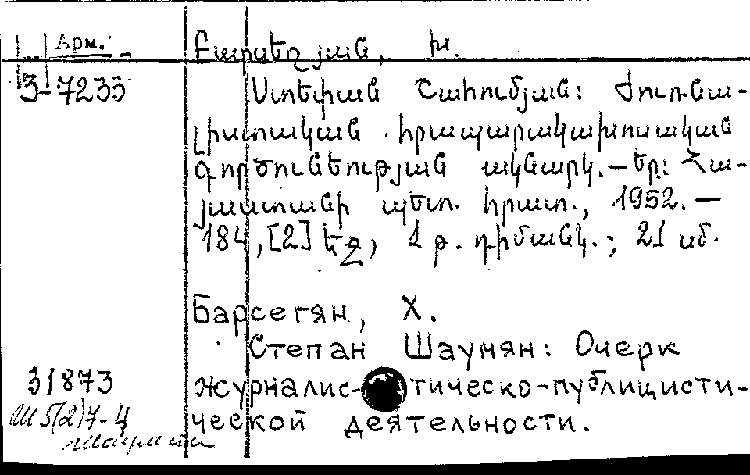 Арм.
Բարսեղյան, Խ.
3-7233
Ստեփան Շահումյան: Ժուռնա-
լիստական հրապարակախոսական
գործունեության ակնարկ. — Եր: Հա-
յաստանի պետ. հրատ., 1952. —
184, [2] եջ, 1 թ. դիմանկ.; 21 սմ.
Барсегян, Х.
Степан Шаумян: Очерк
31873
журналис- тическо-публицисти-
ческой деятельности.